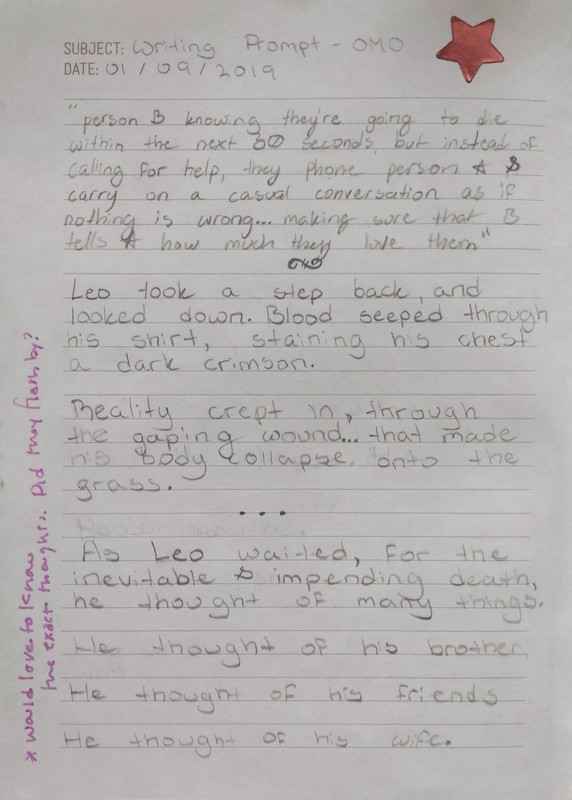 SUBJECT: Writing Prompt - OMO
DATE: 01 / 09 / 2019
"person B knowing they're going to die
within the next 60 seconds, but instead of
calling for help, they phone person A &
carry on a casual conversation as if
nothing is wrong... making sure that B
tells A how much they love them"
Leo took a step back, and
looked down. Blood seeped through
his shirt, staining his chest
a dark crimson.
Reality crept in, through
the gaping wound... that made
his body collapse onto the
grass.
...
As Leo waited, for the
inevitable & impending death,
he thought of many things.
He thought of his brother,
He thought of his friends
He thought of his wife.
* would love to know
the exact thoughts. Did they flash by?